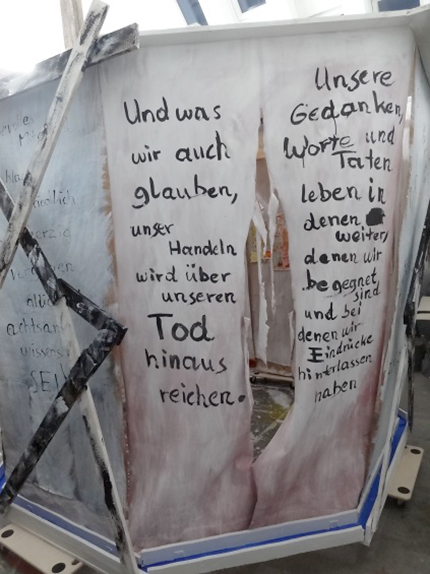 Und was
wir auch
glauben,
unser
Handeln
wird über
unseren
Tod
hinaus
reichen.
Unsere
Gedanken,
Worte und
Taten
leben in
denen
weiter,
denen wir
begegnet
sind
und bei
denen wir
Eindrücke
hinterlassen
haben
achtsam
wissen
SEI